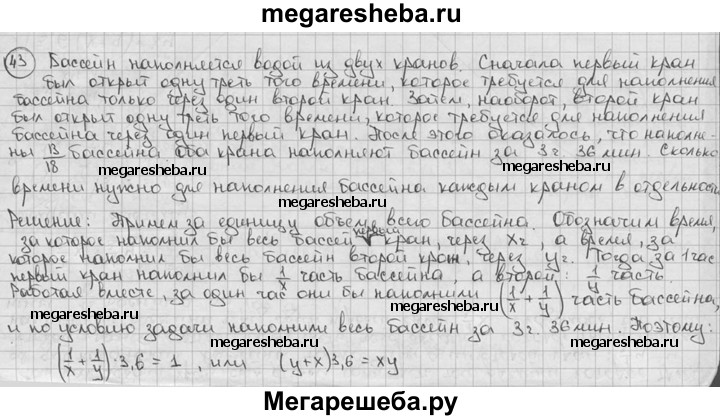 megaresheba.ru
43 Бассейн наполняется водой из двух кранов. Сначала первый кран
был открыт одну треть того времени, которое требуется для наполнения
бассейна только через один второй кран. Затем, наоборот, второй кран
был открыт одну треть того времени, которое требуется для наполнения
бассейна через один первый кран. После этого оказалось, что наполне-
ны 13/18 бассейна оба крана наполняют бассейн за 3г. 36 мин. Сколько
megaresheba.ru megaresheba.ru
времени нужно для наполнения бассейна каждым краном в отдельности
megaresheba.ru
Решение: Примем за единицу объем всего бассейна. Обозначим время,
за которое наполнил бы весь бассейн первый кран, через xг, а время, за
megaresheba.ru megaresheba.ru
которое наполнил бы весь бассейн второй кран, через yг. Тогда за 1 час
первый кран наполнил бы 1/x часть бассейна, а второй: 1/y часть.
Работая вместе, за один час они бы наполнили (1/x + 1/y) часть бассейна,
megaresheba.ru
и по условию задачи наполнили весь бассейн за 3г. 36 мин. Поэтому:
megaresheba.ru megaresheba.ru
(1/x + 1/y) · 3,6 = 1, или (y+x)3,6 = xy
megaresheba.ru
Мегарешеба.ру